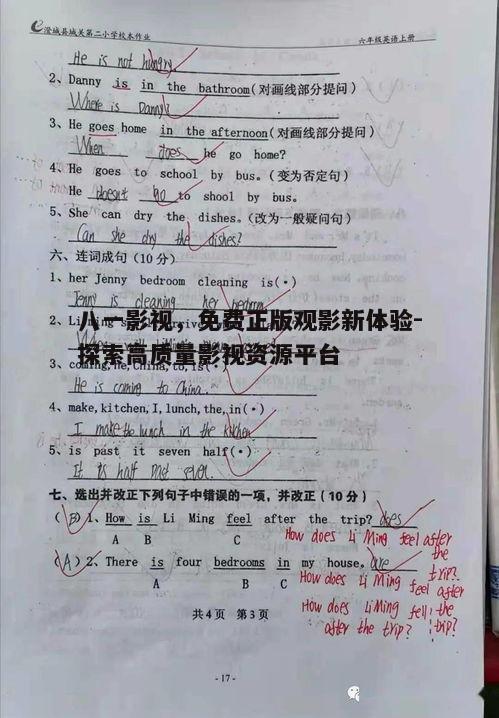 澄城县城关第二小学校本作业 六年级英语上册
He is not hungry.
2、Danny is in the bathroom(对画线部分提问)
Where is Danny?
3、He goes home in the afternoon(对画线部分提问)
When does he go home?
4、He goes to school by bus.(变为否定句)
He doesn't go to shool by bus.
5、She can dry the dishes.(改为一般疑问句)
Can she dry the dishes?
六、连词成句(10分)
1、her Jenny bedroom cleaning is(·)
Jenny is cleaning her bedroom
八一影视，免费正版观影新体验-
探索高质量影视资源平台
2、Li
3、coming,he,China,to,is(·)
He is coming to China.
4、make,kitchen,I,lunch,the,in(·)
I make the lunch in the kitchen
5、is past it seven half(·)
It is half past seven.
七、选出并改正下列句子中错误的一项，并改正(10分)
(B)1、How is Li Ming feel after the trip? does
A B C
How does Li Ming feel after the trip?
(A)2、There is four bedrooms in my house. are
A B C
How does Li Ming feel after the trip?
How does Li Ming fell after the trip?
共4页 第3页
-17-